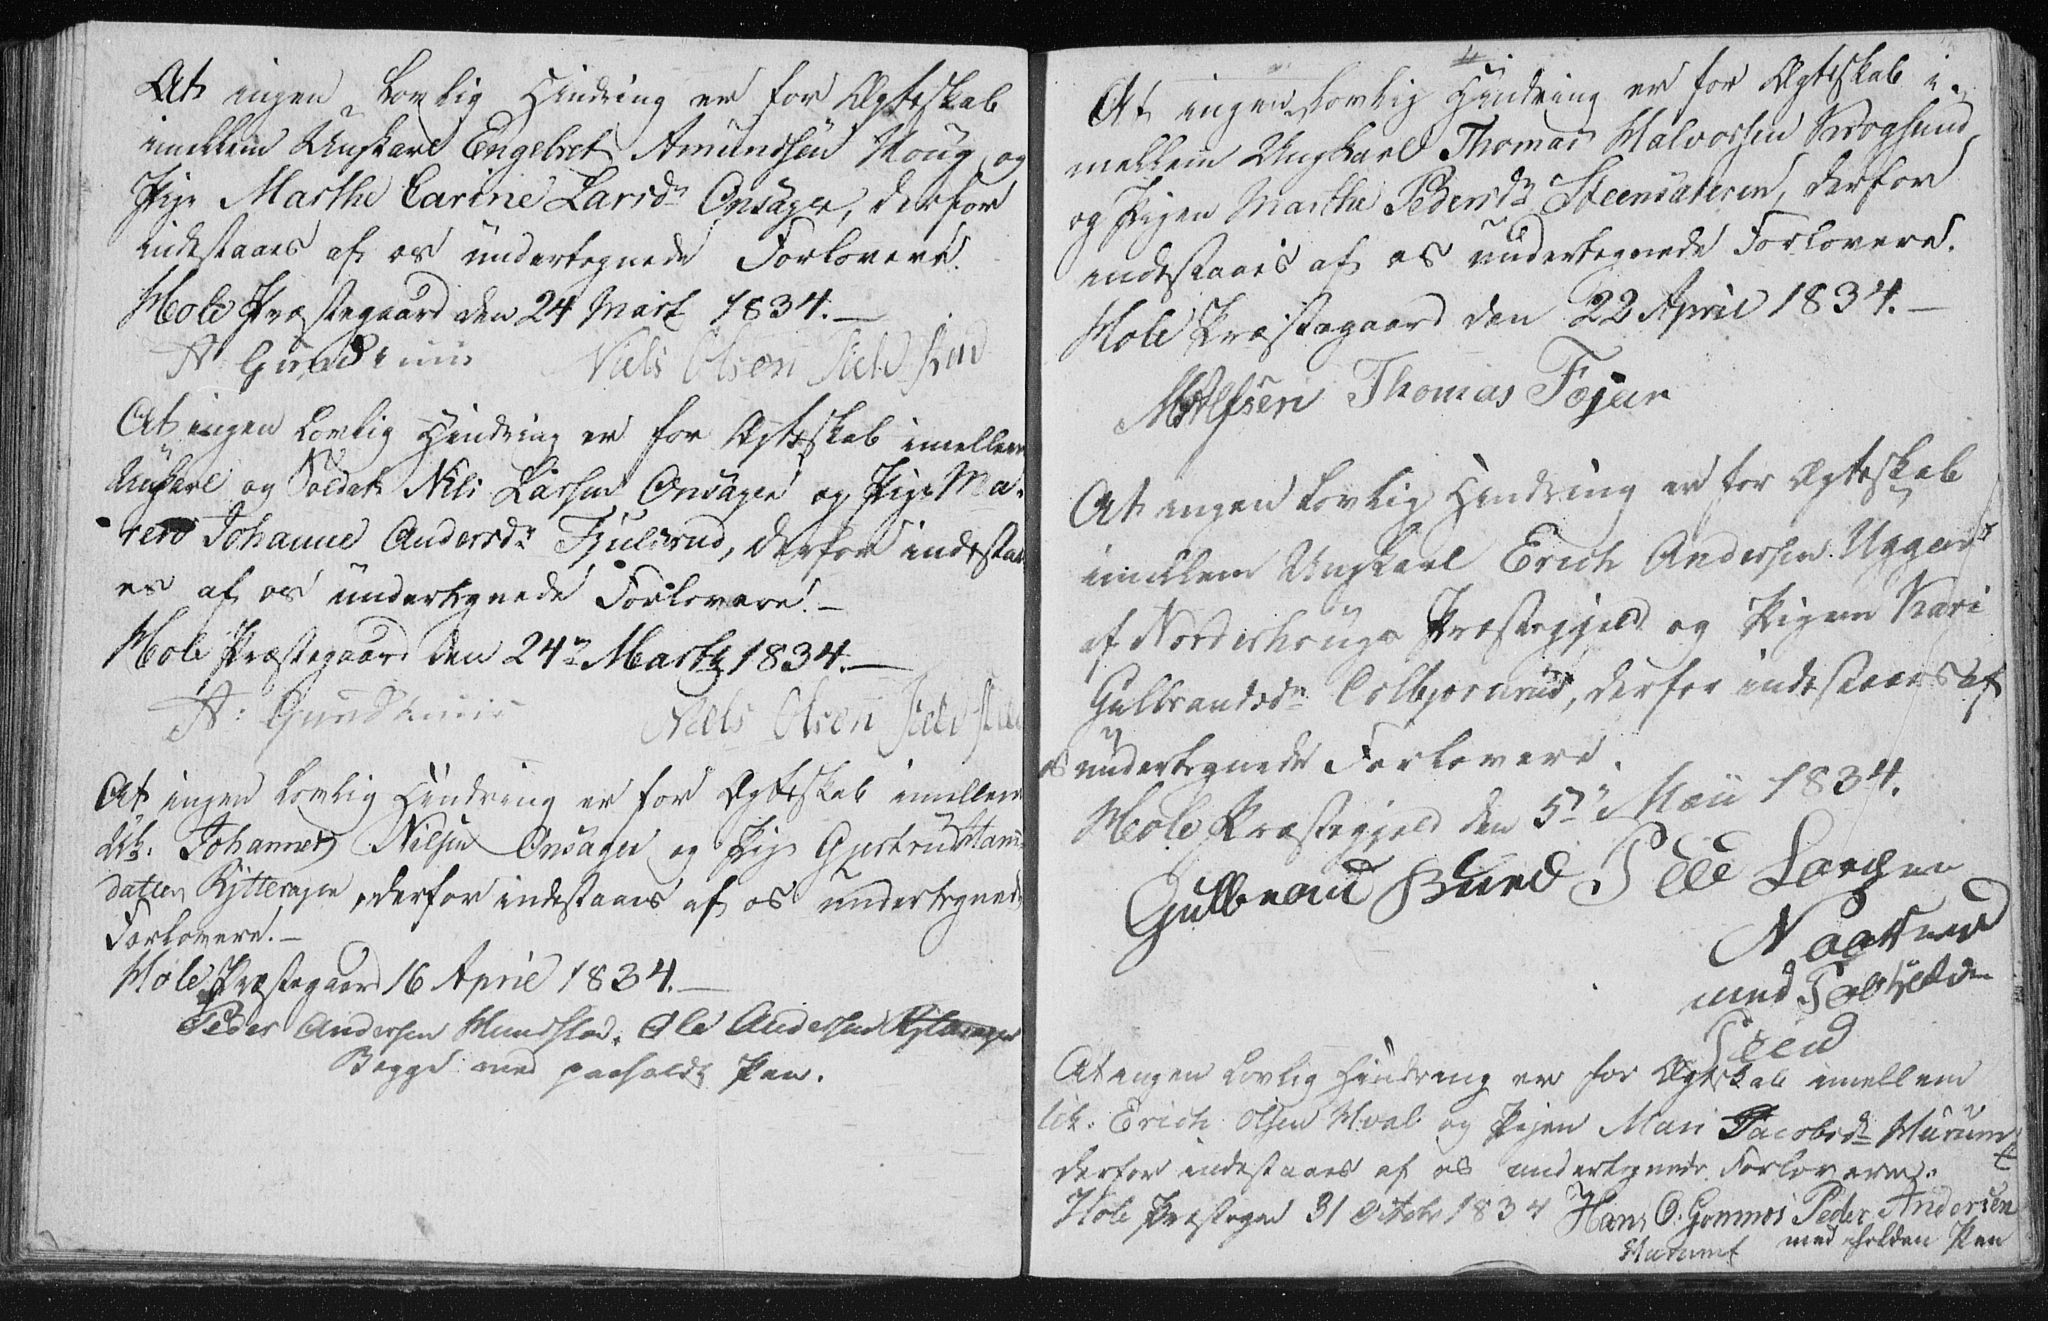 At ingen Lovlig Hindring er for Ægteskab
imellem Ungkarl Engebret Amundsen Houg og
Pige Marthe Carine Larsdr Onsager, derfor
indestaaes af os undertegnede Forlovere.
Hole Præstegaard den 24 Marts 1834.
A: Gundersen Niels Olsen
At ingen Lovlig Hindring er for Ægteskab imellem
Unkarl og Soldat Nils Larsen Onsager og Pige Ma-
ren Johanne Andersdr Fjulsrud, derfor indestaa-
es af os undertegnede Forlovere.
Hole Præstegaard den 24de Marts 1834.
A: Niels Olsen
At ingen Lovlig Hindring er for Ægteskab imellem
Uk. Johannes Nilsen Onsager og Pige Gjertrud
datter Rytterager, derfor indestaaes af os undertegnede
Forlovere.
Hole Præstegaard 16 April 1834.
Peder Andersen Mundstad. Ole Andersen Rytterager
Begge med paaholdt Pen.
At ingen Lovlig Hindring er for Ægteskab i-
mellem Ungkarl Thomas Halvorsen Krogsund,
og Pigen Marthe Pedersdr Steensæteren, derfor
indestaaes af os undertegnede Forlovere.
Hole Præstegaard den 22 April 1834.
Thomas Fæjer
At ingen Lovlig Hindring er for Ægteskab
imellem Ungkarl Erich Andersen
af Norderhougs Præstegjeld og Pigen Kari
Gulbrandsdr Colbjørnrud, derfor indestaaes af
os undertegnede Forlovere.
Hole Præstegjeld den 5te Maii 1834.
Gulbrand Peder Larsen
med
Peen
At ingen Lovlig Hindring er for Ægteskab imellem
Uk. Erich Olsen Hval og Pigen Mari Jacobsdr
derfor indestaaes af os undertegnede Forlovere.
Hole Præstegd 31 Octobr 1834 Hans O: Gommes Peder Andersen
med holden Pen